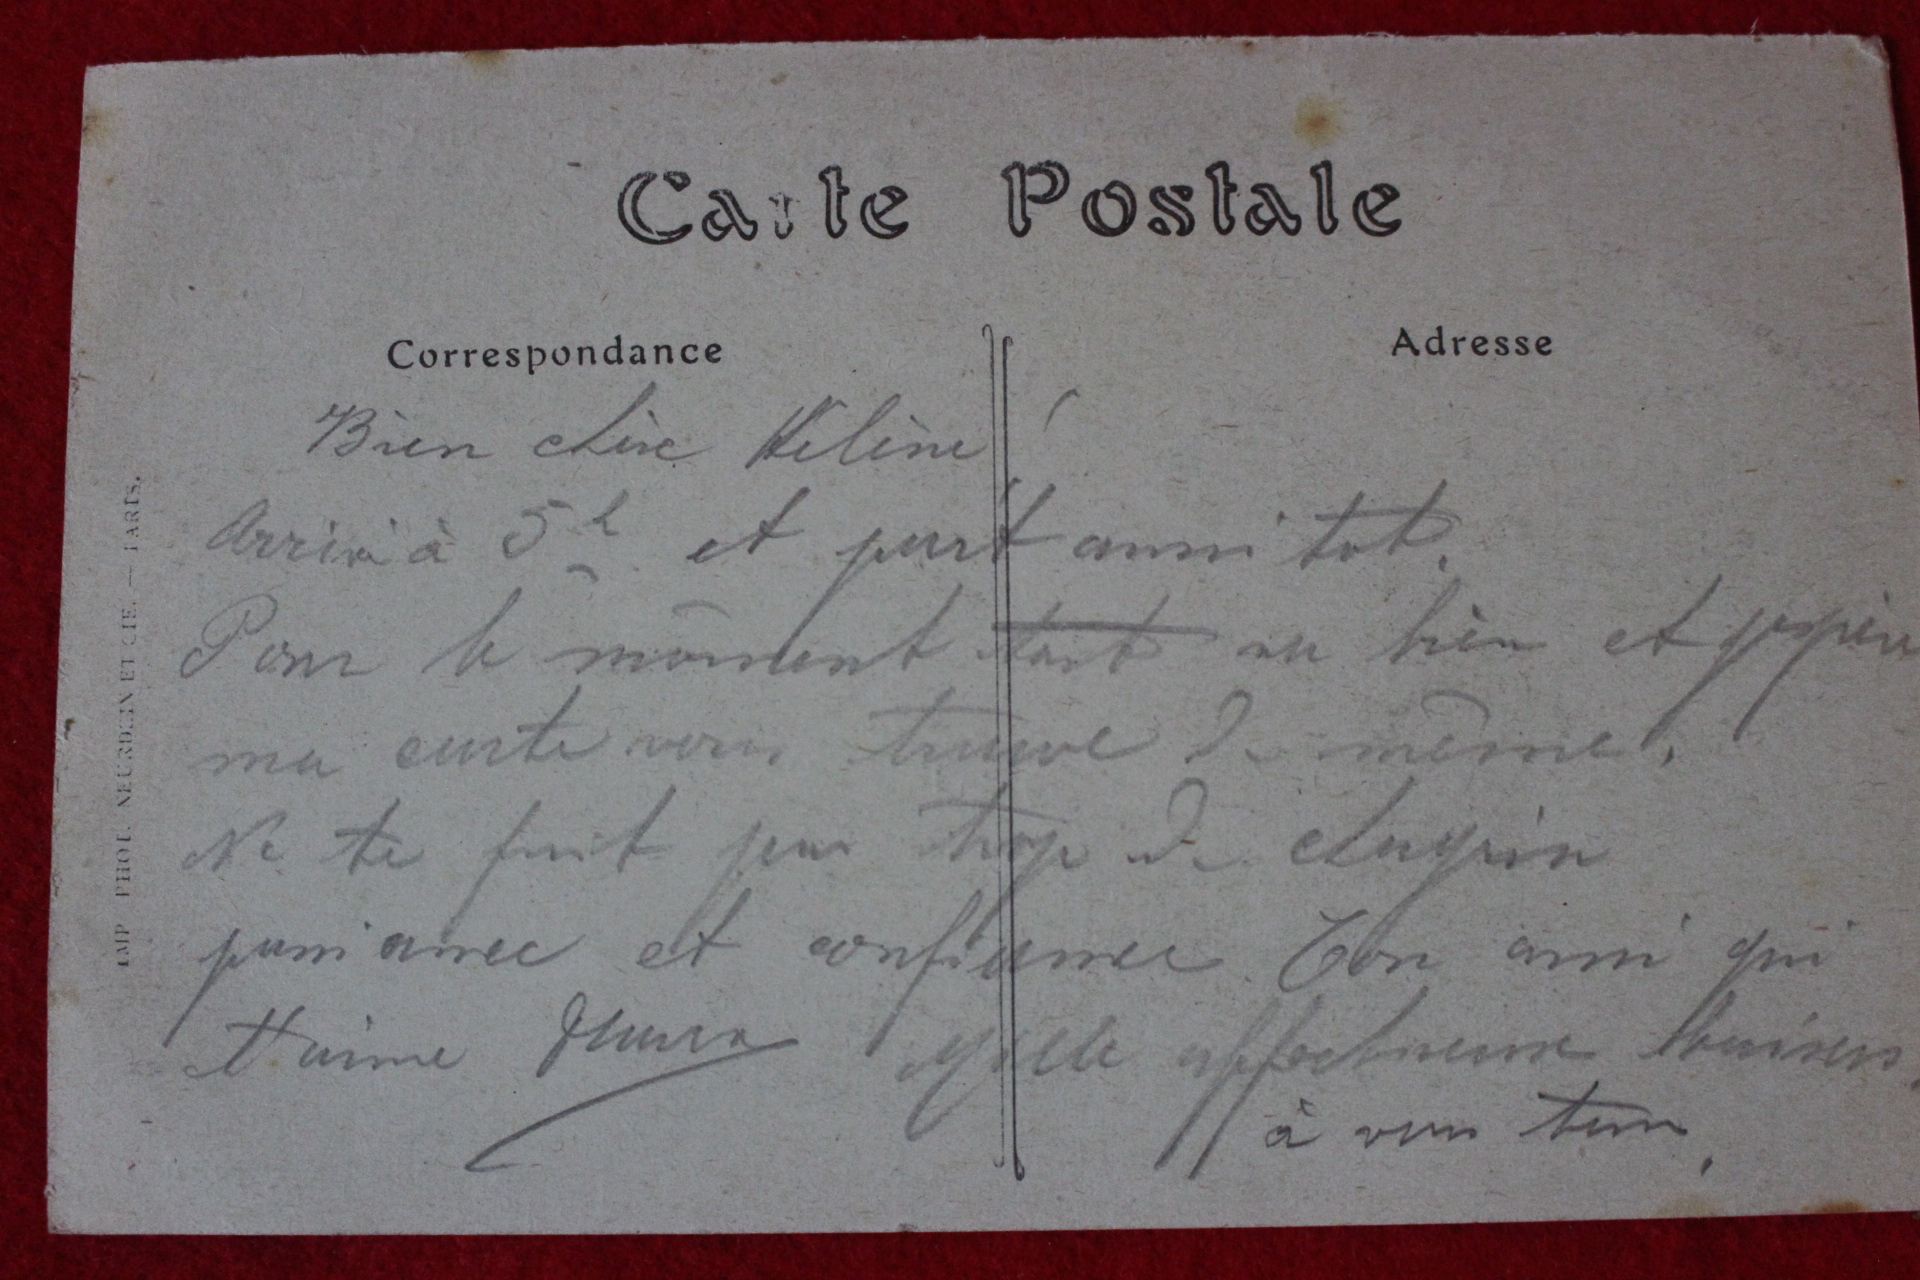 Carte Postale
Correspondance
Adresse
Bien chère Hélène
Arrivé à 5h et part aussi tot.
Pour le môment tout va bien et j'espère
ma carte vous trouve de même.
Ne te fait pas trop de chagrin
patiance et confiance. Ton ami qui
t'aime Mille affectueux baisers
à vous tous.
IMP. PHOT. NEURDEIN ET CIE. — PARIS.